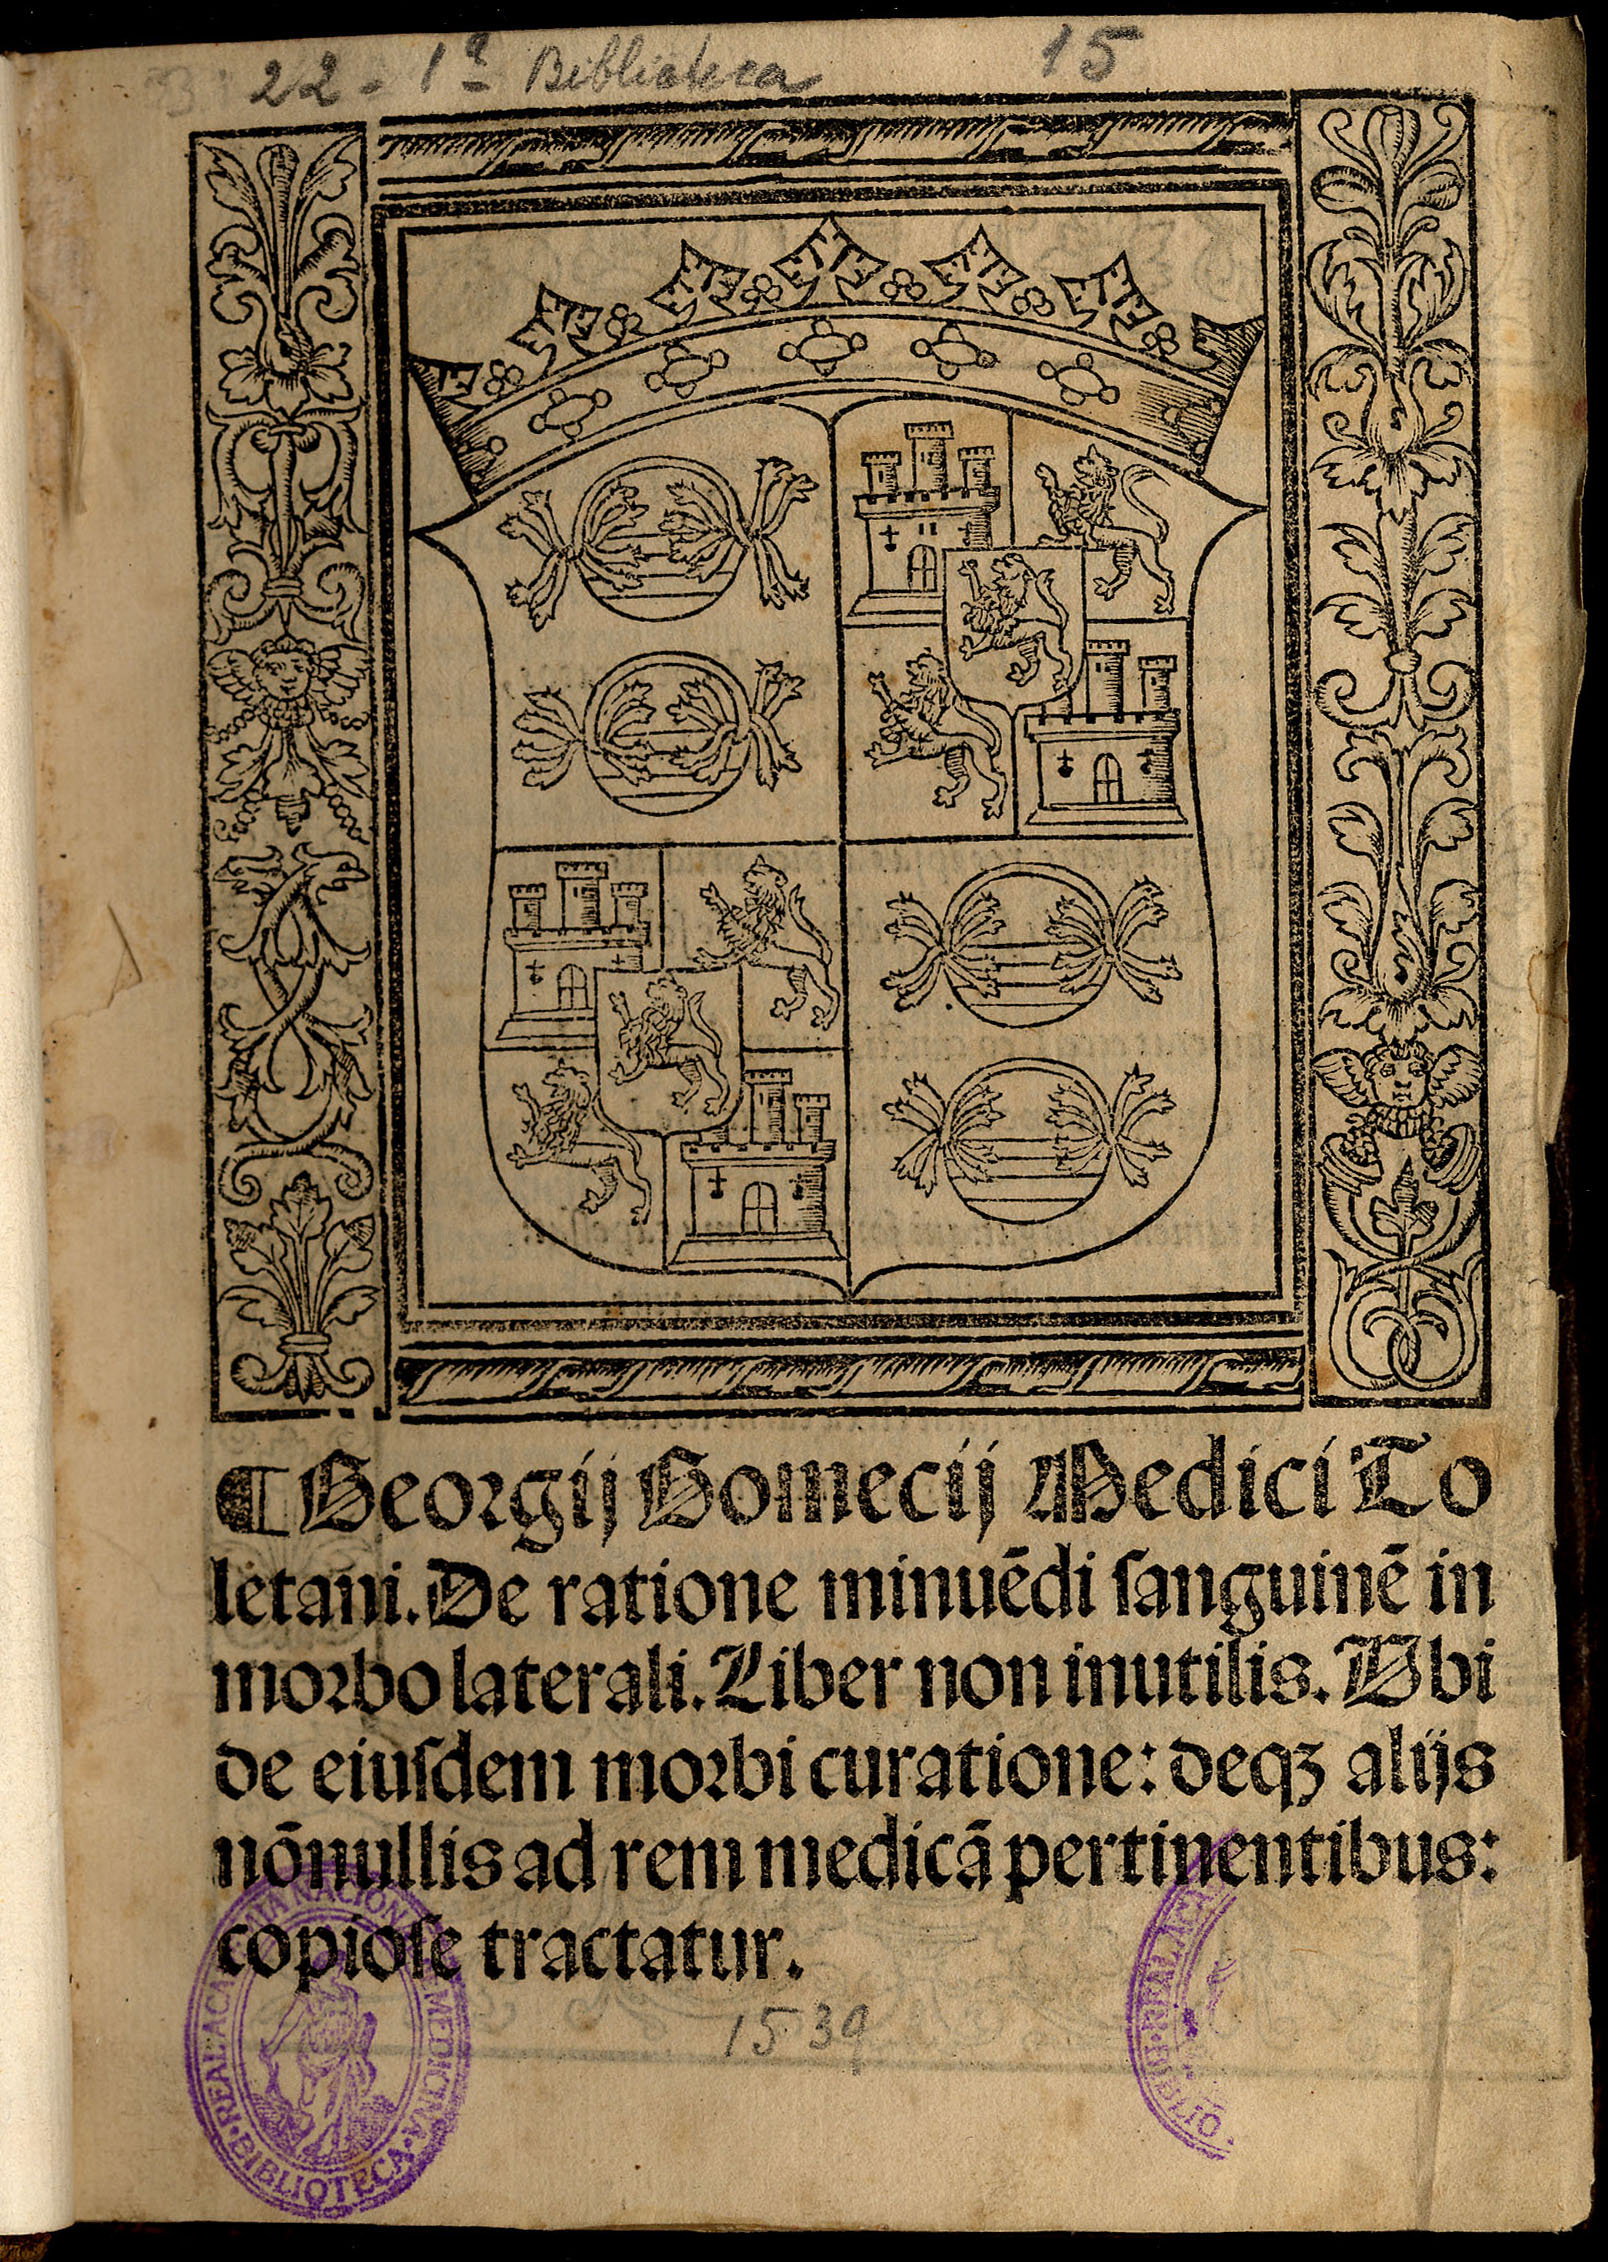 22 - 1ª Biblioteca 15
¶ Georgij Gomecij Medici To
letani. De ratione minuēdi ſanguinē in
morbo laterali. Liber non inutilis. Ubi
de eiuſdem morbi curatione: deqꝫ alijs
nōnullis ad rem medicā pertinentibus:
copioſe tractatur.
1539
REAL ACADEMIA NACIONAL DE MEDICINA · BIBLIOTECA ·
BIBLIO · REAL AC